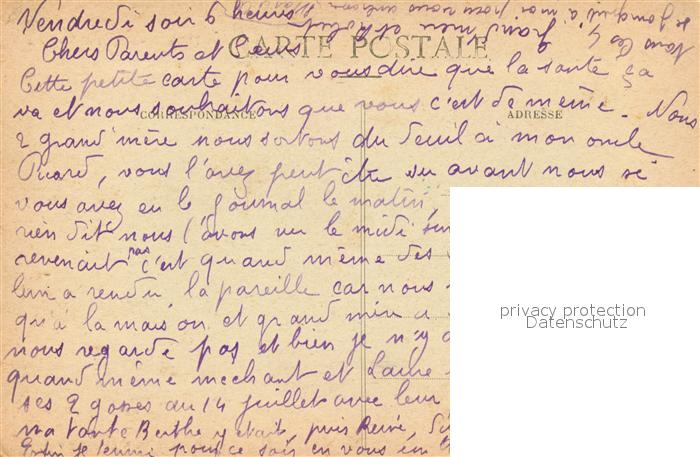 Vendredi soir 6 heures
Chers Parents et
CARTE POSTALE
Cette petite carte pour vous dire que la santé ça
va et nous souhaitons que vous c'est de même. Nous
CORRESPONDANCE
ADRESSE
2 grand'mère nous sortons du deuil à mon oncle
vous l'avez peut être su avant nous si
vous avez eu le journal le matin,
rien dit nous l'avons vu le midi
revenait pas c'est quand même des
leur a rendu la pareille car nous
qu'à la maison et grand
nous regarde pas et bien je n'y
quand même méchant et
ses 2 gosses au 14 juillet avec leur
ma tante Berthe y était, puis René,
je pour ce soir en vous
privacy protection
Datenschutz